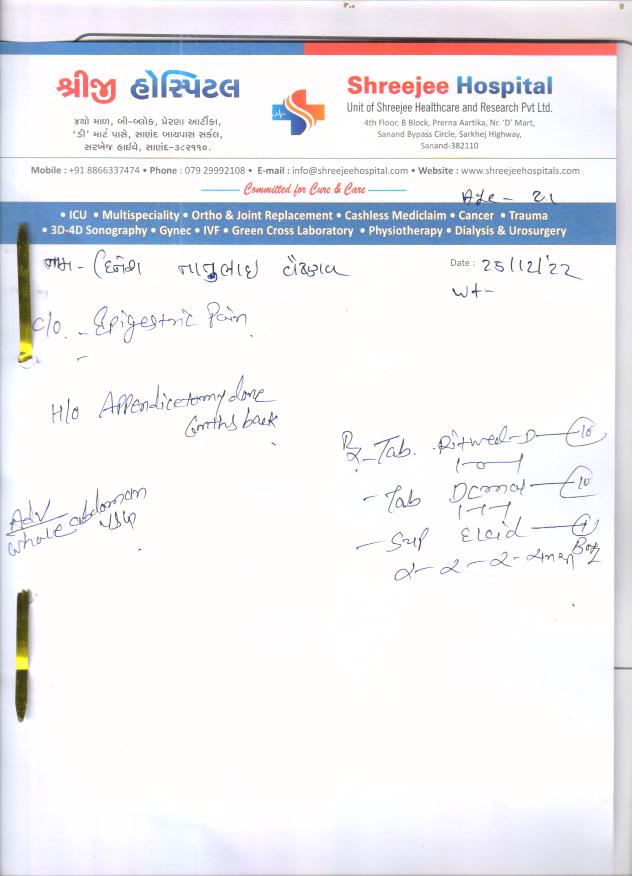 શ્રીજી હોસ્પિટલ
૪થો માળ, બી-બ્લોક, પ્રેરણા આર્ટીકા,
'ડી' માર્ટ પાસે, સાણંદ બાયપાસ સર્કલ,
સરખેજ હાઈવે, સાણંદ-૩૮૨૧૧૦.
Shreejee Hospital
Unit of Shreejee Healthcare and Research Pvt Ltd.
4th Floor, B Block, Prerna Aartika, Nr. 'D' Mart,
Sanand Bypass Circle, Sarkhej Highway,
Sanand-382110
Mobile : +91 8866337474 • Phone : 079 29992108 • E-mail : info@shreejeehospital.com • Website : www.shreejeehospitals.com
Committed for Cure & Care
Age - 21
• ICU • Multispeciality • Ortho & Joint Replacement • Cashless Mediclaim • Cancer • Trauma
• 3D-4D Sonography • Gynec • IVF • Green Cross Laboratory • Physiotherapy • Dialysis & Urosurgery
નામ - દિનેશ
Date : 25/12/22
wt -
C/O. - Epigestric Pain
H/O Appendicetomy done
6 mths back
Rx - Tab. - D - 10
1-0-1
- Tab - 10
1-1-1
- Syp - 1
2 - 2 - 2 -
Adv
whole abdoman